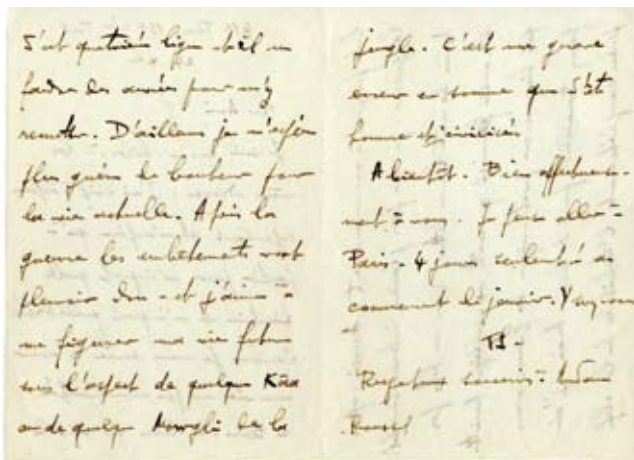 ligne et il me
faudra des années pour m'y
remettre. D'ailleurs je n'espère
plus guère de bonheur pour
la vie actuelle. Après la
guerre les embêtements vont
pleuvoir dru - et j'aime à
me figurer ma vie future
sous l'aspect de quelque Kaa
ou de quelque Mowgli de la
jungle. C'est une grave
erreur en somme que d'être
homme et civilisé
A bientôt. Bien affectueuse-
ment à vous. Je pense aller à
Paris - 4 jours au
commencement de janvier. Y
TS-
Respectueux à Madame